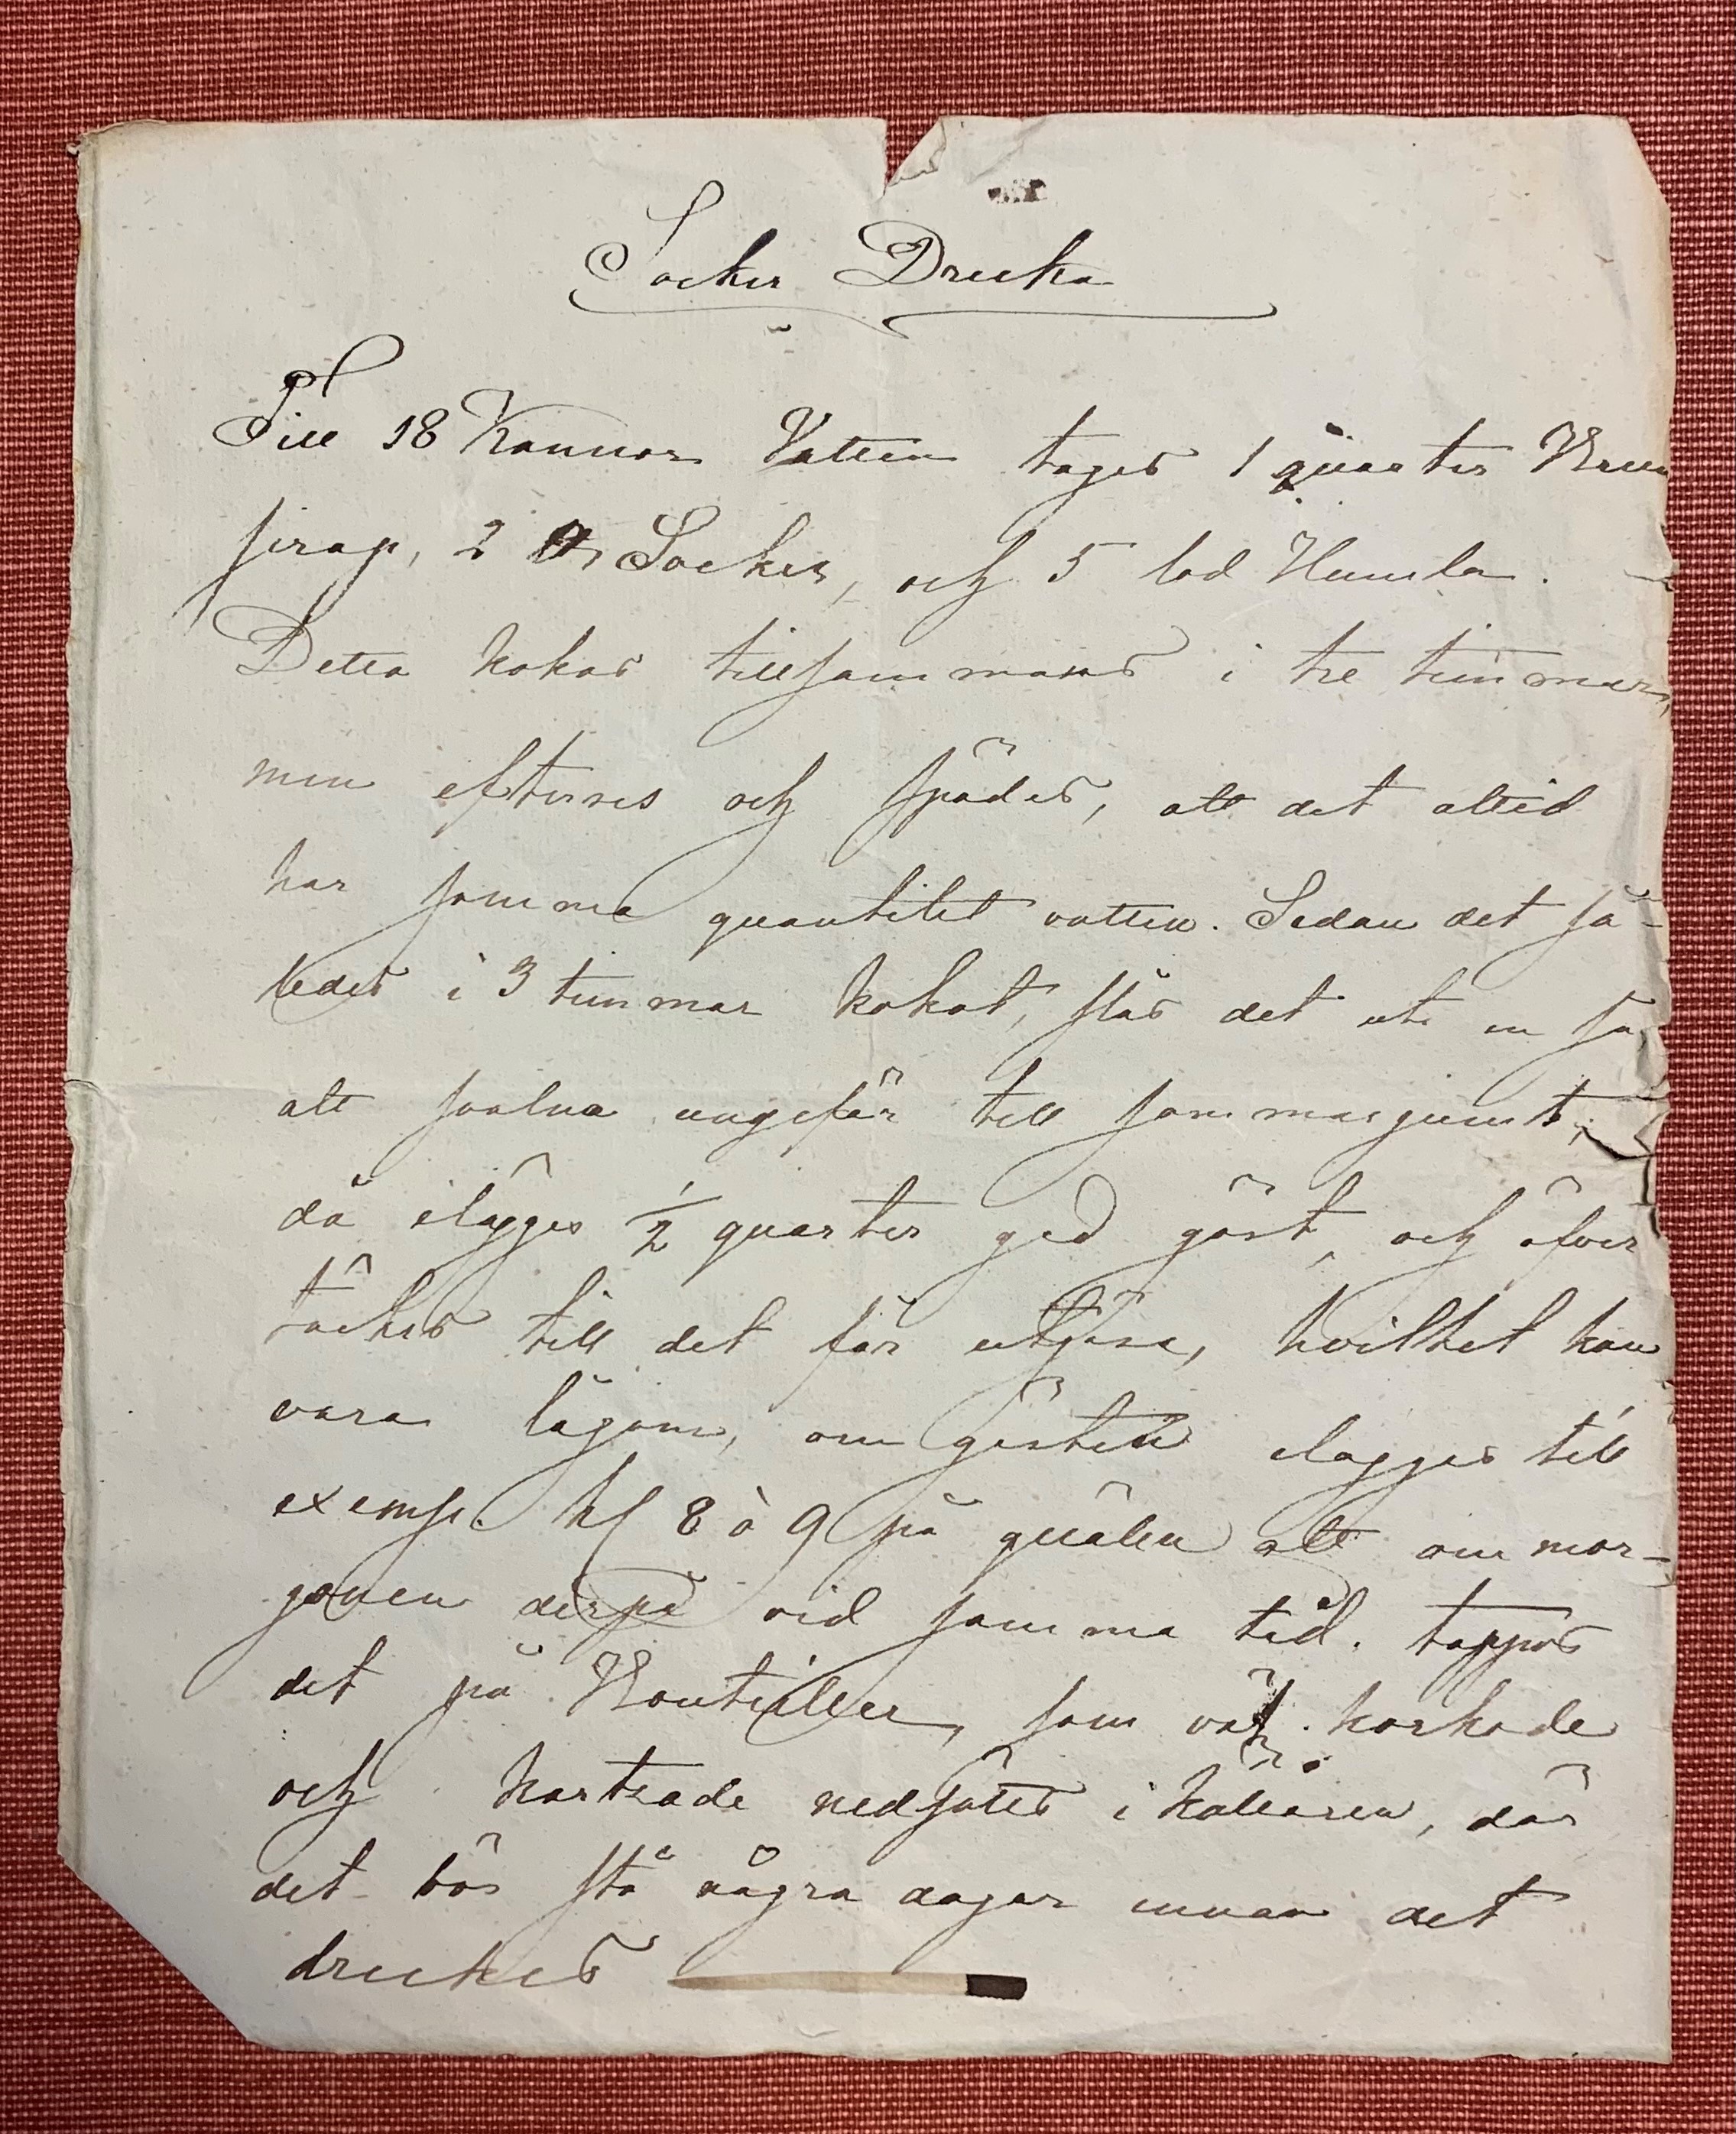 Socker Dricka
Till 18 Kannor Vatten tages 1 quarter Brun
sirap, 2 ℔ Socker, och 5 lod Humla.
Detta kokas tillsammans i tre timmar,
men efterses och spädes, att det alltid
har samma quantitet vatten. Sedan det så-
ledes i 3 timmar kokat, slås det uti en så
att svalna ungefär till sommarljumt,
då ilägges 1/2 quarter god gäst, och öfver
täckes till det får utjäsa, hvilket kan
vara lagom, om gästen ilägges till
exemp. kl 8 à 9 på quälen att om mor-
gonen derpå vid samma tid. tappas
det på Bouteiller, som väl korkade
och hartsade nedsättes i källaren, där
det bör stå några dagar innan det
drickes